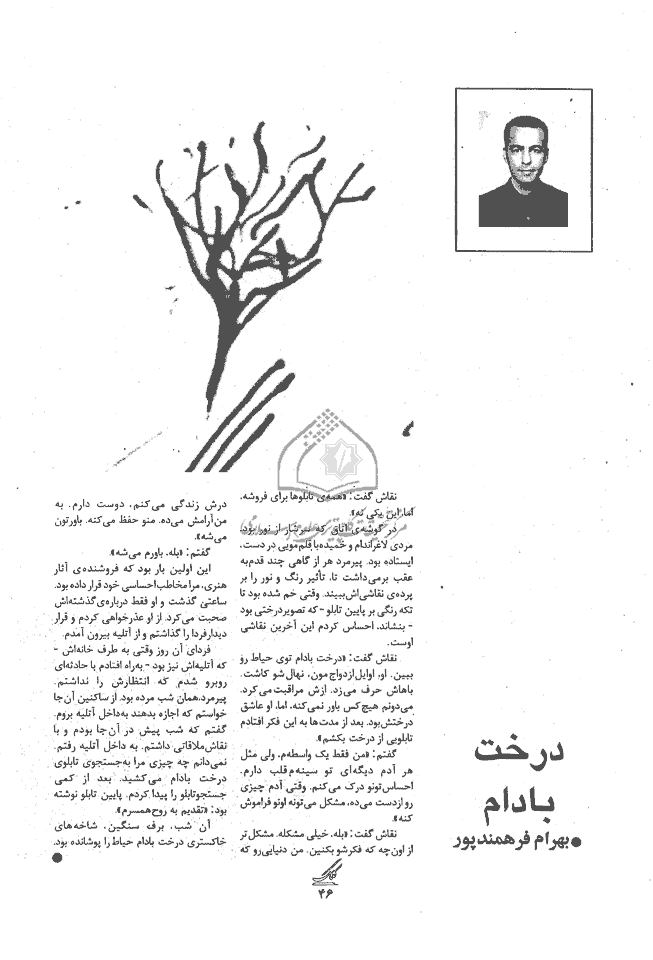 درخت
بادام
●بهرام فرهمندپور
نقاش گفت: «همه‌ی تابلوها برای فروشه.
اما این یکی نه».
در گوشه‌ی اتاق که سرشار از نور بود،
مردی لاغراندام و خمیده با قلم‌مویی در دست،
ایستاده بود. پیرمرد هر از گاهی چند قدم به
عقب برمی‌داشت تا، تأثیر رنگ و نور را بر
پرده‌ی نقاشی‌اش ببیند. وقتی خم شده بود تا
تکه رنگی بر پایین تابلو - که تصویر درختی بود
- بنشاند، احساس کردم این آخرین نقاشی
اوست.
نقاش گفت: «درخت بادام توی حیاط رو
ببین. او، اوایل ازدواج‌مون، نهال‌شو کاشت.
باهاش حرف می‌زد. ازش مراقبت می‌کرد.
می‌دونم هیچ‌کس باور نمی‌کنه، اما، او عاشق
درختش بود. بعد از مدت‌ها به این فکر افتادم
تابلویی از درخت بکشم».
گفتم: «من فقط یک واسطه‌م، ولی مثل
هر آدم دیگه‌ای تو سینه‌م قلب دارم.
احساس‌تونو درک می‌کنم. وقتی آدم چیزی
رو از دست می‌ده، مشکل می‌تونه اونو فراموش
کنه».
نقاش گفت: «بله، خیلی مشکله. مشکل‌تر
از اون‌چه که فکرشو بکنین. من دنیایی‌رو که
درش زندگی می‌کنم، دوست دارم. به
من آرامش می‌ده. منو حفظ می‌کنه. باورتون
می‌شه».
گفتم: «بله، باورم می‌شه».
این اولین بار بود که فروشنده‌ی آثار
هنری، مرا مخاطب احساسی خود قرار داده بود.
ساعتی گذشت و او فقط درباره‌ی گذشته‌اش
صحبت می‌کرد. از او عذرخواهی کردم و قرار
دیدار فردا را گذاشتم و از آتلیه بیرون آمدم.
فردای آن روز وقتی به طرف خانه‌اش -
که آتلیه‌اش نیز بود - به‌راه افتادم با حادثه‌ای
روبرو شدم که انتظارش را نداشتم.
پیرمرد، همان شب مرده بود. از ساکنین آن‌جا
خواستم که اجازه بدهند به‌داخل آتلیه بروم.
گفتم که شب پیش در آن‌جا بودم و با
نقاش ملاقاتی داشتم. به داخل آتلیه رفتم.
نمی‌دانم چه چیزی مرا به‌جستجوی تابلوی
درخت بادام می‌کشید. بعد از کمی
جستجو تابلو را پیدا کردم. پایین تابلو نوشته
بود: «تقدیم به روح همسرم».
آن شب، برف سنگین، شاخه‌های
خاکستری درخت بادام حیاط را پوشانده بود.
●
۴۶